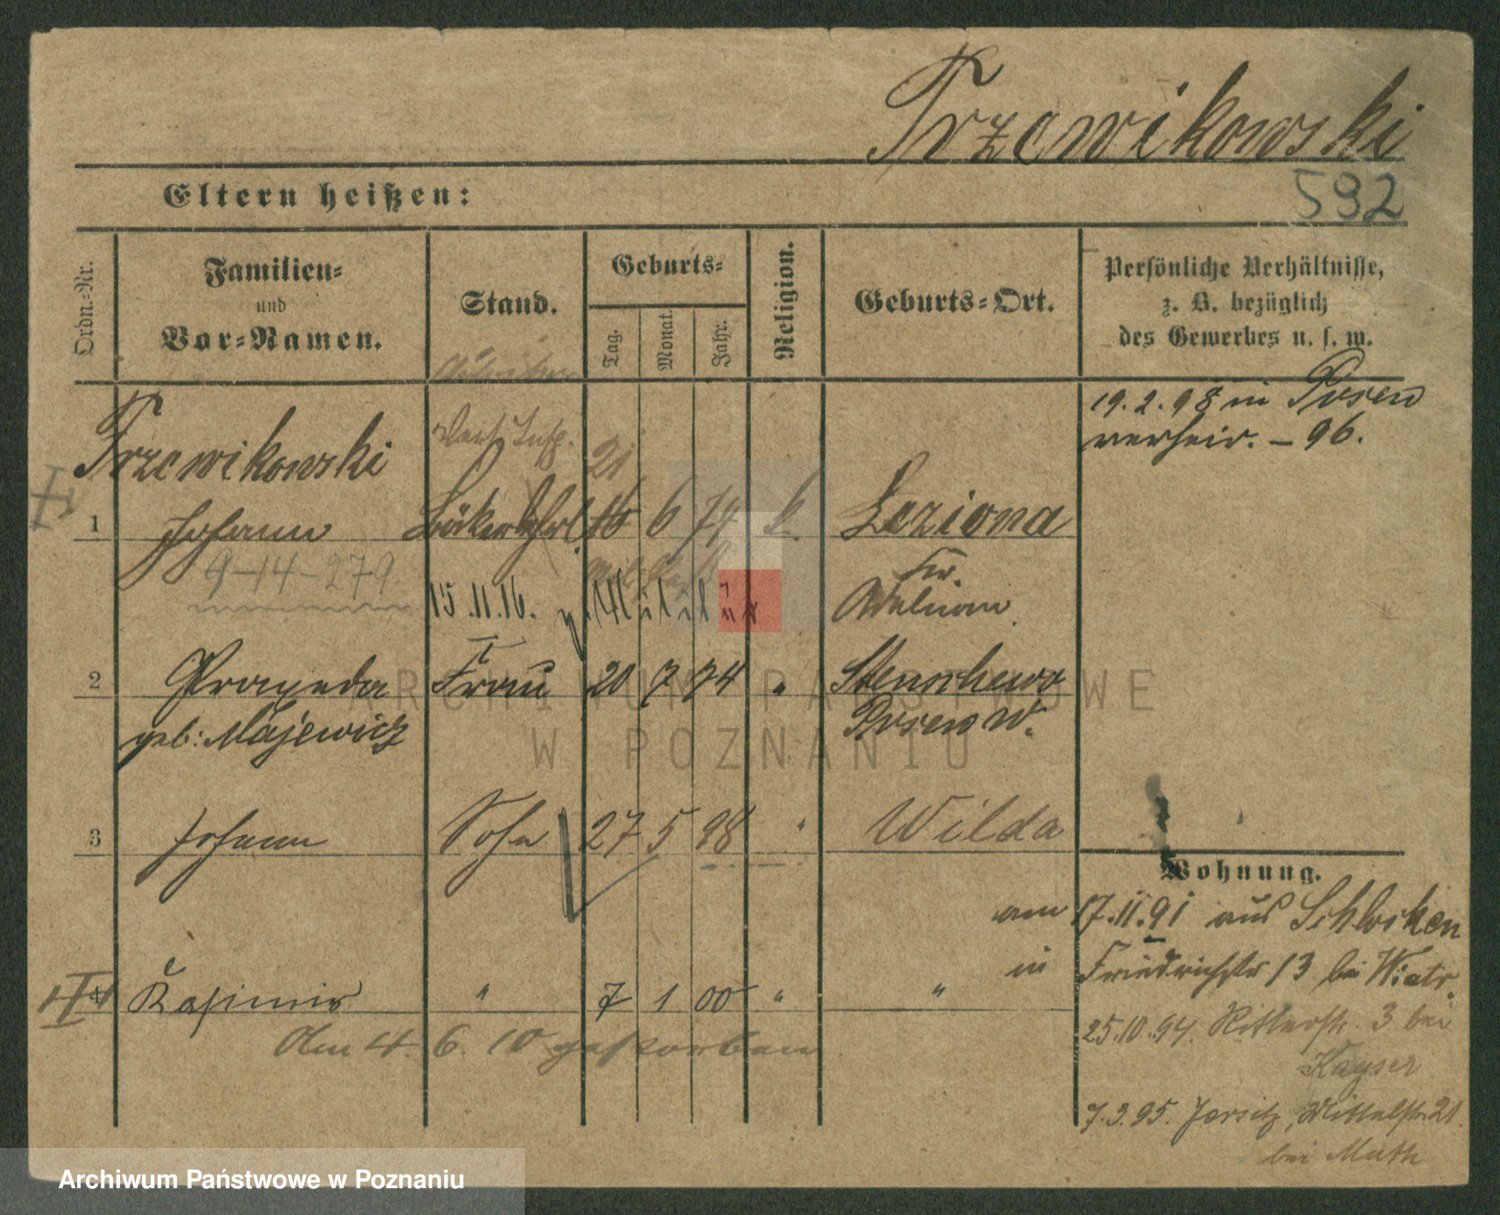 Trzcwikowski
Eltern heißen:
592
Ordn.-Nr.
Familien-
und
Vor-Namen.
Stand.
Geburts-
Tag.
Monat.
Jahr.
Religion.
Geburts-Ort.
Persönliche Verhältnisse,
z. B. bezüglich
des Gewerbes u. s. w.
19. 2. 98 in Posen
verheir. – 96.
Trzcwikowski
21
1 Johann 16 6 74 k. Leziona
9-14-279
15.11.16.
2 Praxeda Frau 20 7 74 " Stenschewo
geb: Majewicz Posen W.
3 Johann Sohn 27 5 98 " Wilda
Wohnung.
am 17.11.91 aus Schlocken
in Friedrichstr 13 bei Wiatr.
4 Kasimir " 7 1 00 " "
Am 4. 6. 10 gestorben
25.10.94. Ritterstr. 3 bei
Kayser
7.3.95. Jersitz, Mittelstr. 21
bei Muth
ARCHIWUM PAŃSTWOWE
W POZNANIU
Archiwum Państwowe w Poznaniu